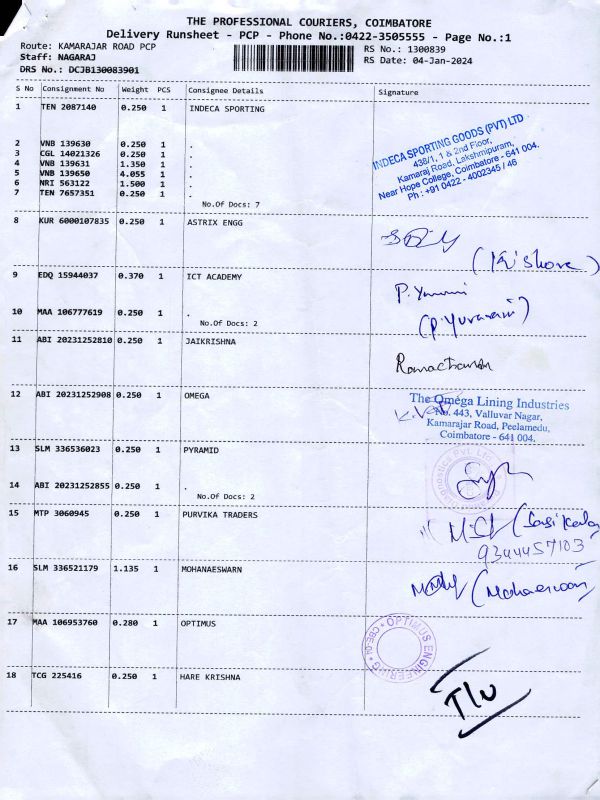 THE PROFESSIONAL COURIERS, COIMBATORE
Delivery Runsheet - PCP - Phone No.:0422-3505555 - Page No.:1
Route: KAMARAJAR ROAD PCP
RS No.: 1300839
Staff: NAGARAJ
RS Date: 04-Jan-2024
DRS No.: DCJB130083901
S No Consignment No Weight PCS Consignee Details Signature
1 TEN 2087140 0.250 1 INDECA SPORTING
INDECA SPORTING GOODS (PVT) LTD
438/1, 1 & 2nd Floor,
Kamaraj Road, Lakshmipuram,
Near Hope College, Coimbatore - 641 004.
Ph : +91 0422 - 4002345 / 46
2 VNB 139630 0.250 1 .
3 CGL 14021326 0.250 1 .
4 VNB 139631 1.350 1 .
5 VNB 139650 4.055 1 .
6 NRI 563122 1.500 1 .
7 TEN 7657351 0.250 1 .
No.Of Docs: 7
8 KUR 6000107835 0.250 1 ASTRIX ENGG
(Kishore)
9 EDQ 15944037 0.370 1 ICT ACADEMY
10 MAA 106777619 0.250 1 .
(P. Yuvarani)
No.Of Docs: 2
11 ABI 20231252810 0.250 1 JAIKRISHNA
12 ABI 20231252908 0.250 1 OMEGA
The Omega Lining Industries
No. 443, Valluvar Nagar,
Kamarajar Road, Peelamedu,
Coimbatore - 641 004.
13 SLM 336536023 0.250 1 PYRAMID
14 ABI 20231252855 0.250 1 .
No.Of Docs: 2
15 MTP 3060945 0.250 1 PURVIKA TRADERS
9344457103
16 SLM 336521179 1.135 1 MOHANAESWARN
17 MAA 106953760 0.280 1 OPTIMUS
OPTIMUS ENGINEERING
18 TCG 225416 0.250 1 HARE KRISHNA